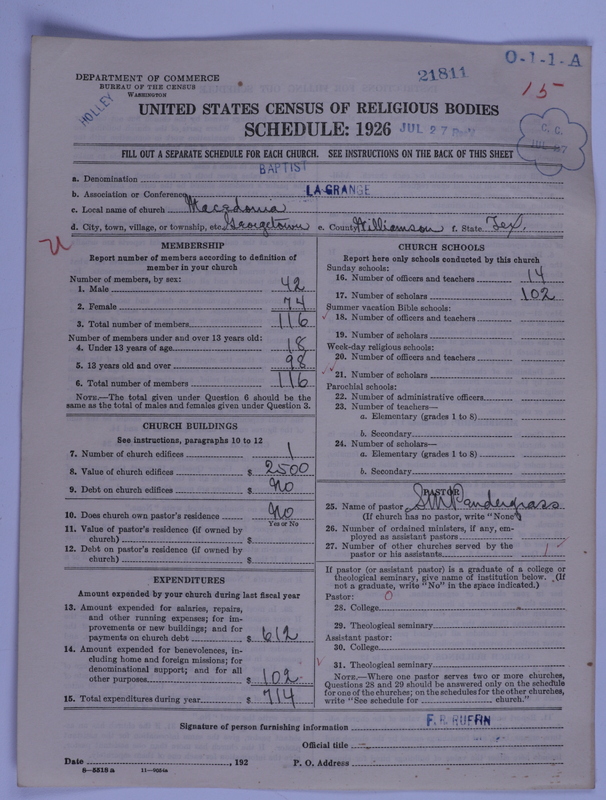 O-1-1-A
21811
15
DEPARTMENT OF COMMERCE
BUREAU OF THE CENSUS
WASHINGTON
HOLLEY
UNITED STATES CENSUS OF RELIGIOUS BODIES
SCHEDULE: 1926 JUL 27
C. C.
FILL OUT A SEPARATE SCHEDULE FOR EACH CHURCH. SEE INSTRUCTIONS ON THE BACK OF THIS SHEET
a. Denomination BAPTIST
b. Association or Conference LA GRANGE
c. Local name of church Macedonia
d. City, town, village, or township, etc. Georgetown e. County Williamson f. State Tex.
MEMBERSHIP
Report number of members according to definition of
member in your church
Number of members, by sex:
1. Male 42
2. Female 74
3. Total number of members 116
Number of members under and over 13 years old:
4. Under 13 years of age 18
5. 13 years old and over 98
6. Total number of members 116
NOTE.—The total given under Question 6 should be the
same as the total of males and females given under Question 3.
CHURCH BUILDINGS
See instructions, paragraphs 10 to 12
7. Number of church edifices 1
8. Value of church edifices $ 2500
9. Debt on church edifices $ No
10. Does church own pastor's residence? No
Yes or No
11. Value of pastor's residence (if owned by
church) $
12. Debt on pastor's residence (if owned by
church) $
EXPENDITURES
Amount expended by your church during last fiscal year
13. Amount expended for salaries, repairs,
and other running expenses; for im-
provements or new buildings; and for
payments on church debt $ 612
14. Amount expended for benevolences, in-
cluding home and foreign missions; for
denominational support; and for all
other purposes $ 102
15. Total expenditures during year $ 714
CHURCH SCHOOLS
Report here only schools conducted by this church
Sunday schools:
16. Number of officers and teachers 14
17. Number of scholars 102
Summer vacation Bible schools:
18. Number of officers and teachers
19. Number of scholars
Week-day religious schools:
20. Number of officers and teachers
21. Number of scholars
Parochial schools:
22. Number of administrative officers
23. Number of teachers—
a. Elementary (grades 1 to 8)
b. Secondary
24. Number of scholars—
a. Elementary (grades 1 to 8)
b. Secondary
PASTOR
25. Name of pastor S M Pandergrass
(If church has no pastor, write "None")
26. Number of ordained ministers, if any, em-
ployed as assistant pastors
27. Number of other churches served by the
pastor or his assistants 1
If pastor (or assistant pastor) is a graduate of a college or
theological seminary, give name of institution below. (If
not a graduate, write "No" in the space indicated.)
Pastor: 0
28. College
29. Theological seminary
Assistant pastor:
30. College
31. Theological seminary
NOTE.—Where one pastor serves two or more churches,
Questions 28 and 29 should be answered only on the schedule
for one of the churches; on the schedules for the other churches,
write "See schedule for church."
Signature of person furnishing information
Official title
Date , 192 P. O. Address
8—5518a 11—9034a